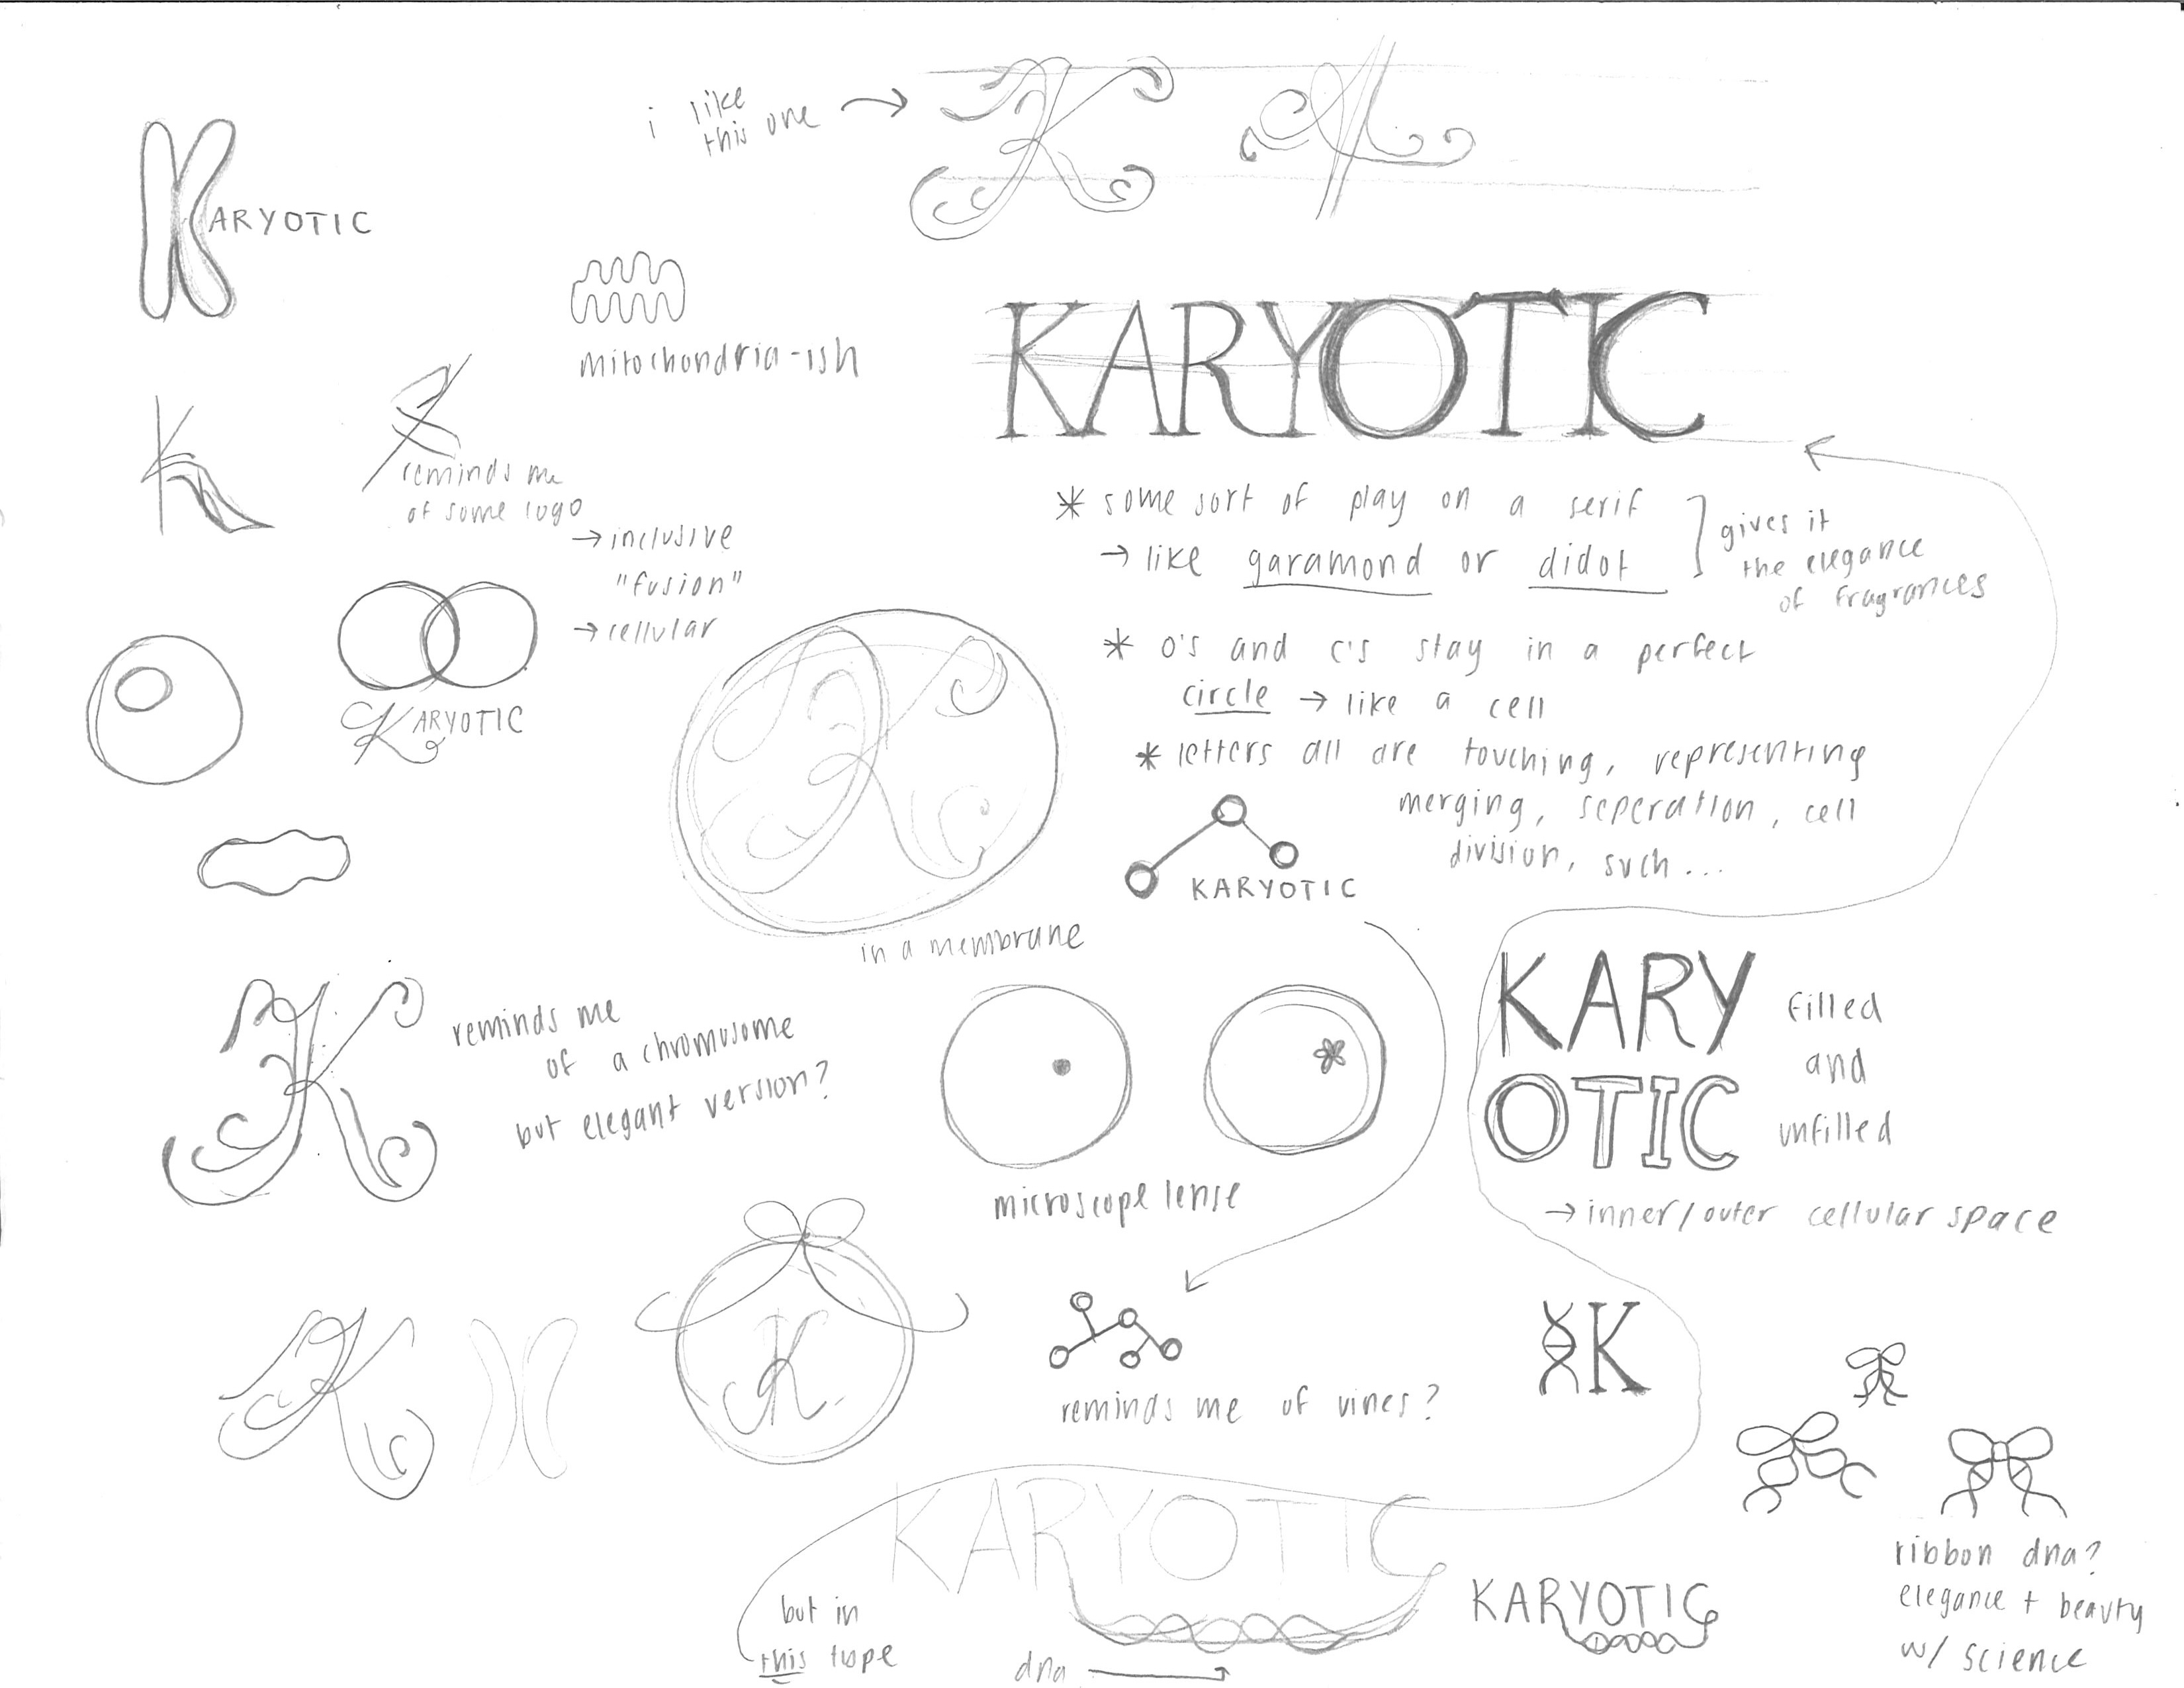 i like
this one
KARYOTIC
mitochondria-ish
KARYOTIC
reminds me
of some logo
→ inclusive
"fusion"
→ cellular
KARYOTIC
* some sort of play on a serif
→ like garamond or didot
gives it
the elegance
of fragrances
* o's and c's stay in a perfect
circle → like a cell
* letters all are touching, representing
merging, seperation, cell
division, such...
KARYOTIC
in a membrane
K
reminds me
of a chromosome
but elegant version?
microscope lense
KARY
OTIC
filled
and
unfilled
→ inner/outer cellular space
K
K
reminds me of vines?
K
KARYOTIC
but in
this type
dna
KARYOTIC
ribbon dna?
elegance + beauty
w/ science